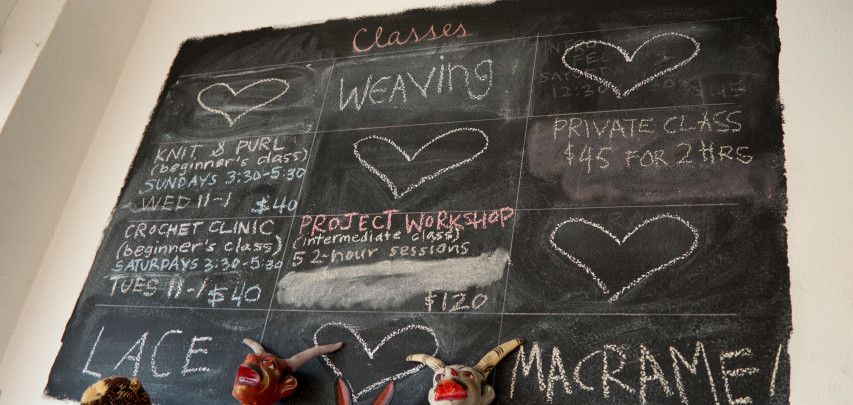 Classes
WEAVING
KNIT & PURL
(beginner's class)
SUNDAYS 3:30-5:30
WED 11-1 $40
PRIVATE CLASS
$45 FOR 2 HRS
CROCHET CLINIC
(beginner's class)
SATURDAYS 3:30-5:30
TUES 11-1 $40
PROJECT WORKSHOP
(intermediate class)
5 2-hour sessions
$120
LACE
MACRAME!